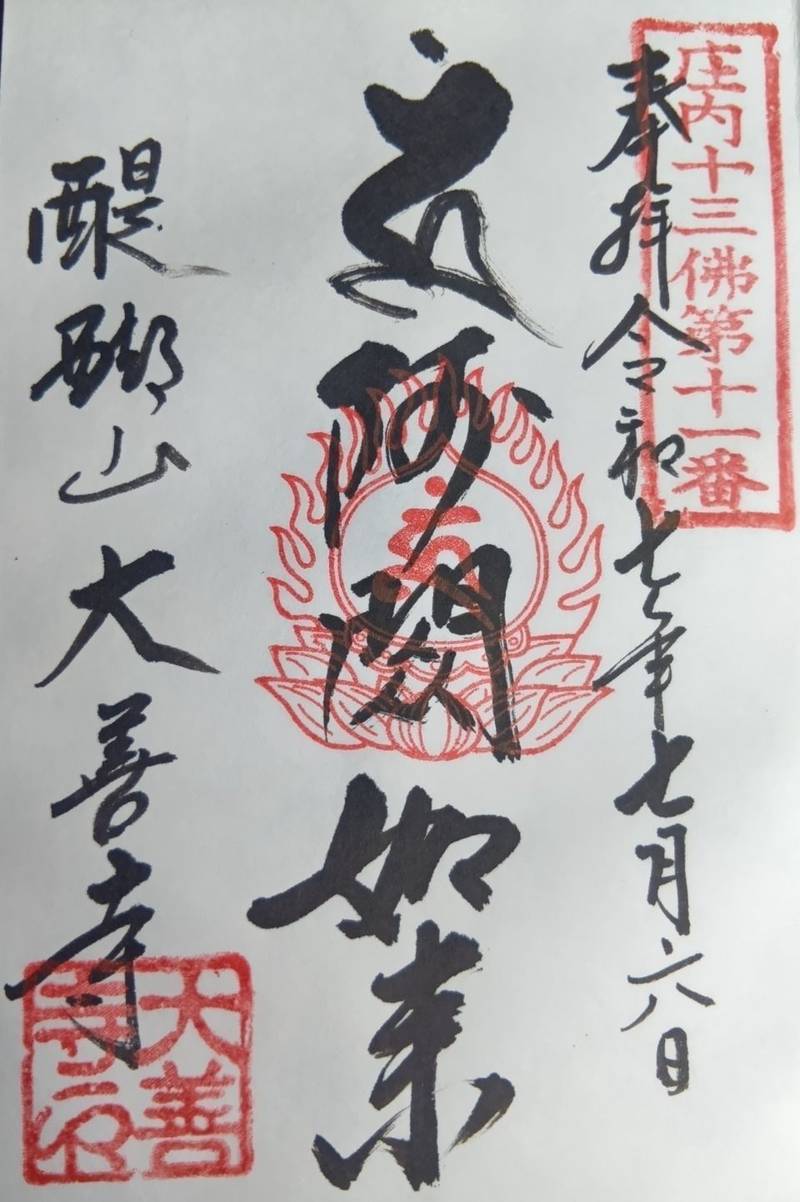 庄内十三佛第十一番
奉拝 令和七年七月六日
阿閦如来
醍醐山 大善寺
大善寺印